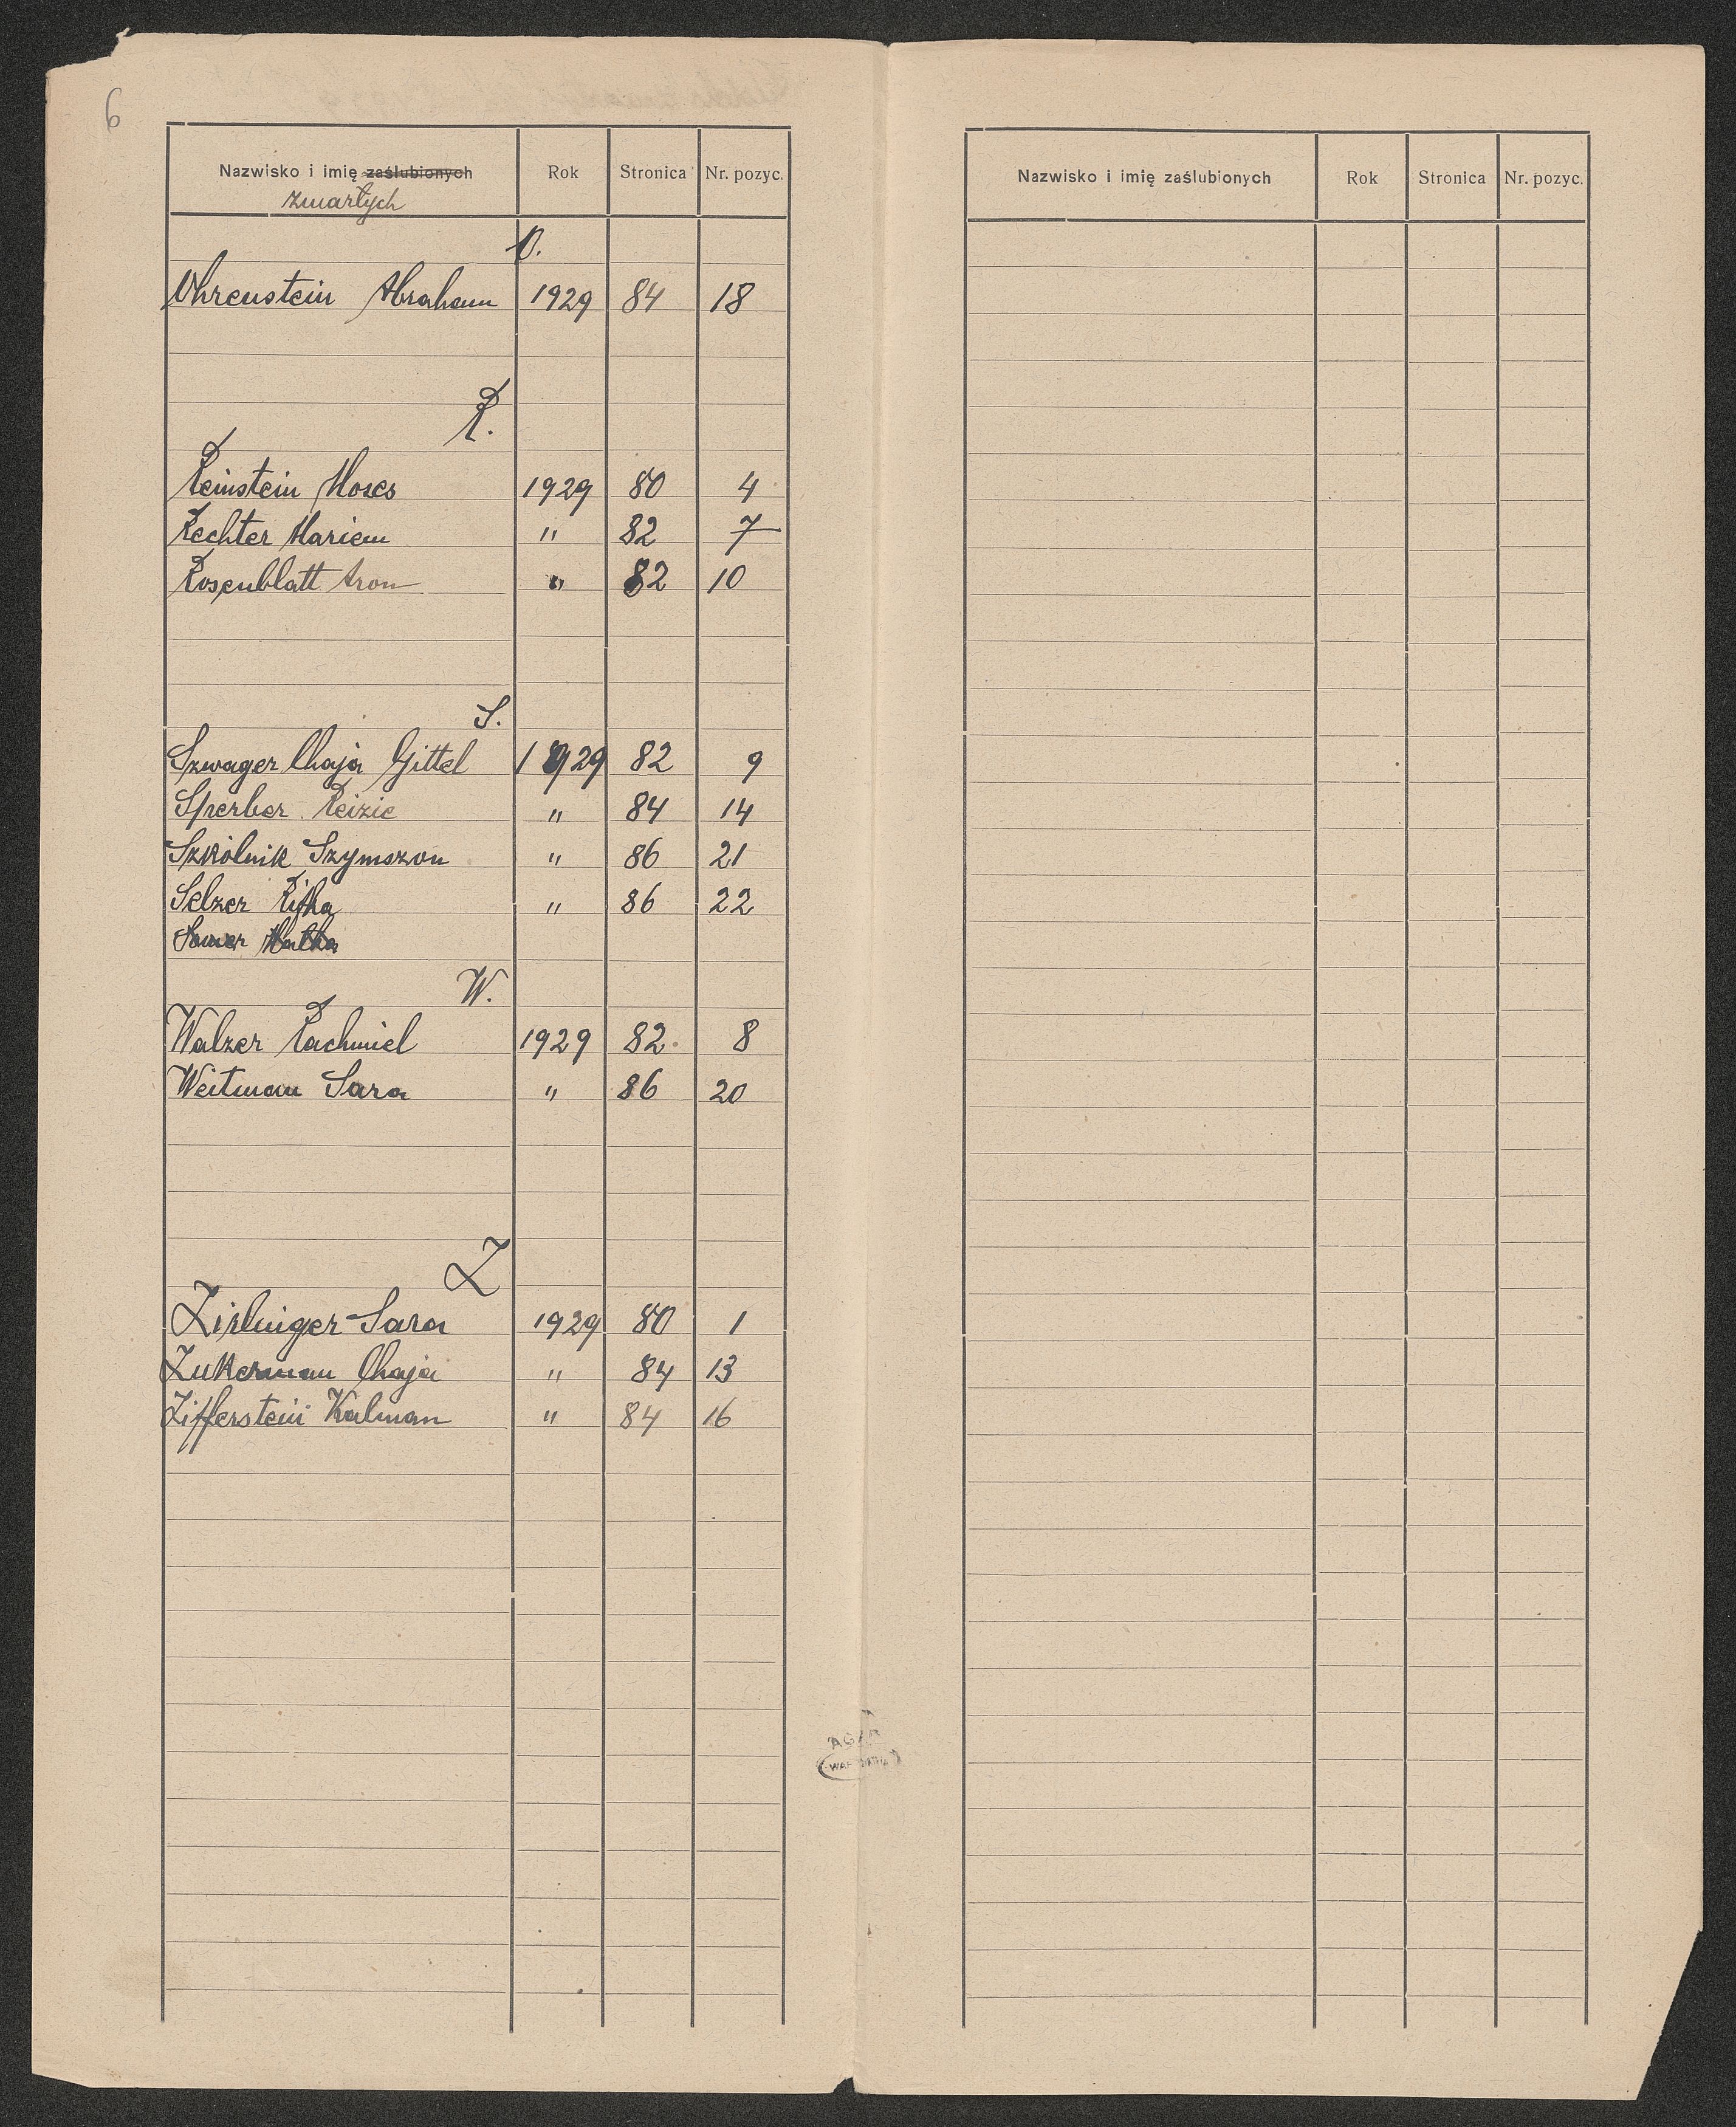 6
Nazwisko i imię zaślubionych Rok Stronica Nr. pozyc.
zmarłych
O.
Ohrenstein Abraham 1929 84 18
R.
Reinstein Moses 1929 80 4
Rechter Mariem " 82 7
Rosenblatt Aron " 82 10
S.
Szwager Chaja Gittel 1929 82 9
Sperber Reizie " 84 14
Szkólnik Szymszon " 86 21
Selzer Rifka " 86 22
W.
Walzer Rachmiel 1929 82 8
Weitman Sara " 86 20
Z
Sara 1929 80 1
Zukerman Chaja " 84 13
Zifferstein Kalman " 84 16
Nazwisko i imię zaślubionych Rok Stronica Nr. pozyc.